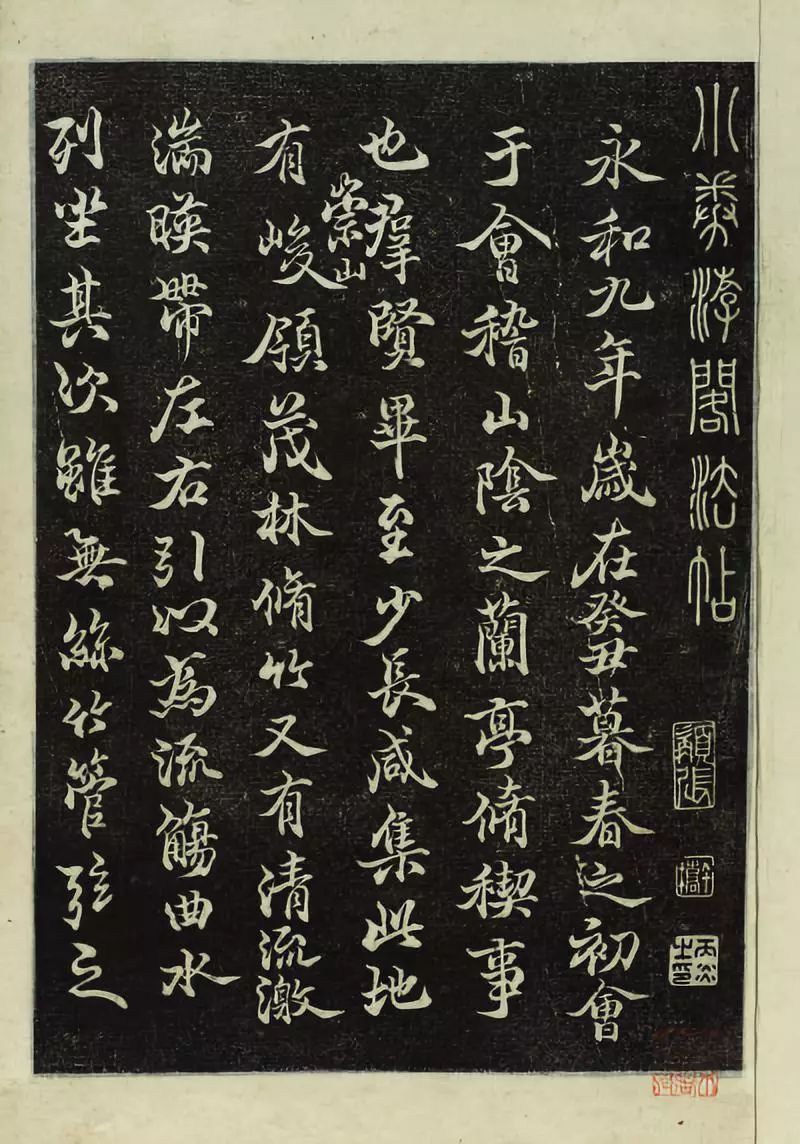 閣法帖
永和九年歲在癸丑暮春之初會
于會稽山陰之蘭亭脩稧事
也羣賢畢至少長咸集此地
有崇山峻領茂林脩竹又有清流激
湍暎帶左右引以為流觴曲水
列坐其次雖無絲竹管弦之